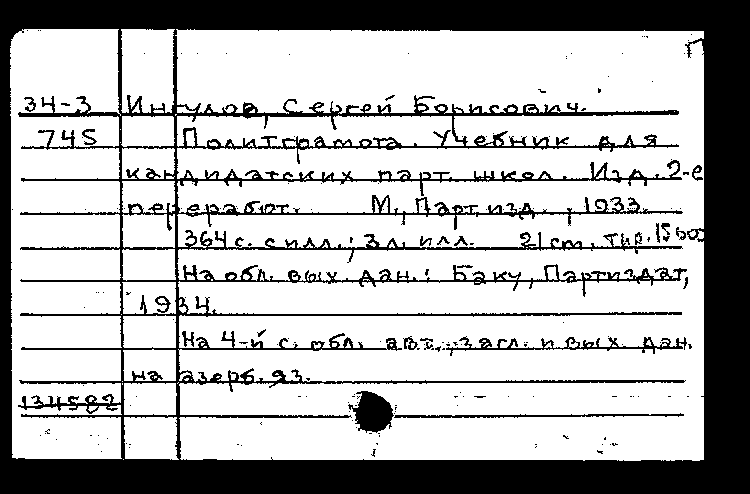 П
34-3 Ингулов, Сергей Борисович.
745 Политграмота. Учебник для
кандидатских парт. школ. Изд. 2-е
переработ. М., Парт. изд., 1933.
364 с. с илл.; 3 л. илл. 21 cm. тир. 15000
На обл. вых. дан.: Баку, Партиздат,
1934.
На 4-й с. обл. авт., загл. и вых. дан.
на азерб. яз.
134582